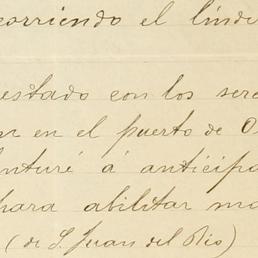 corriendo el linde
estado con los ser
en el puerto de O
enturé á anticipa
para abilitar ma
(de S. Juan del Rio)